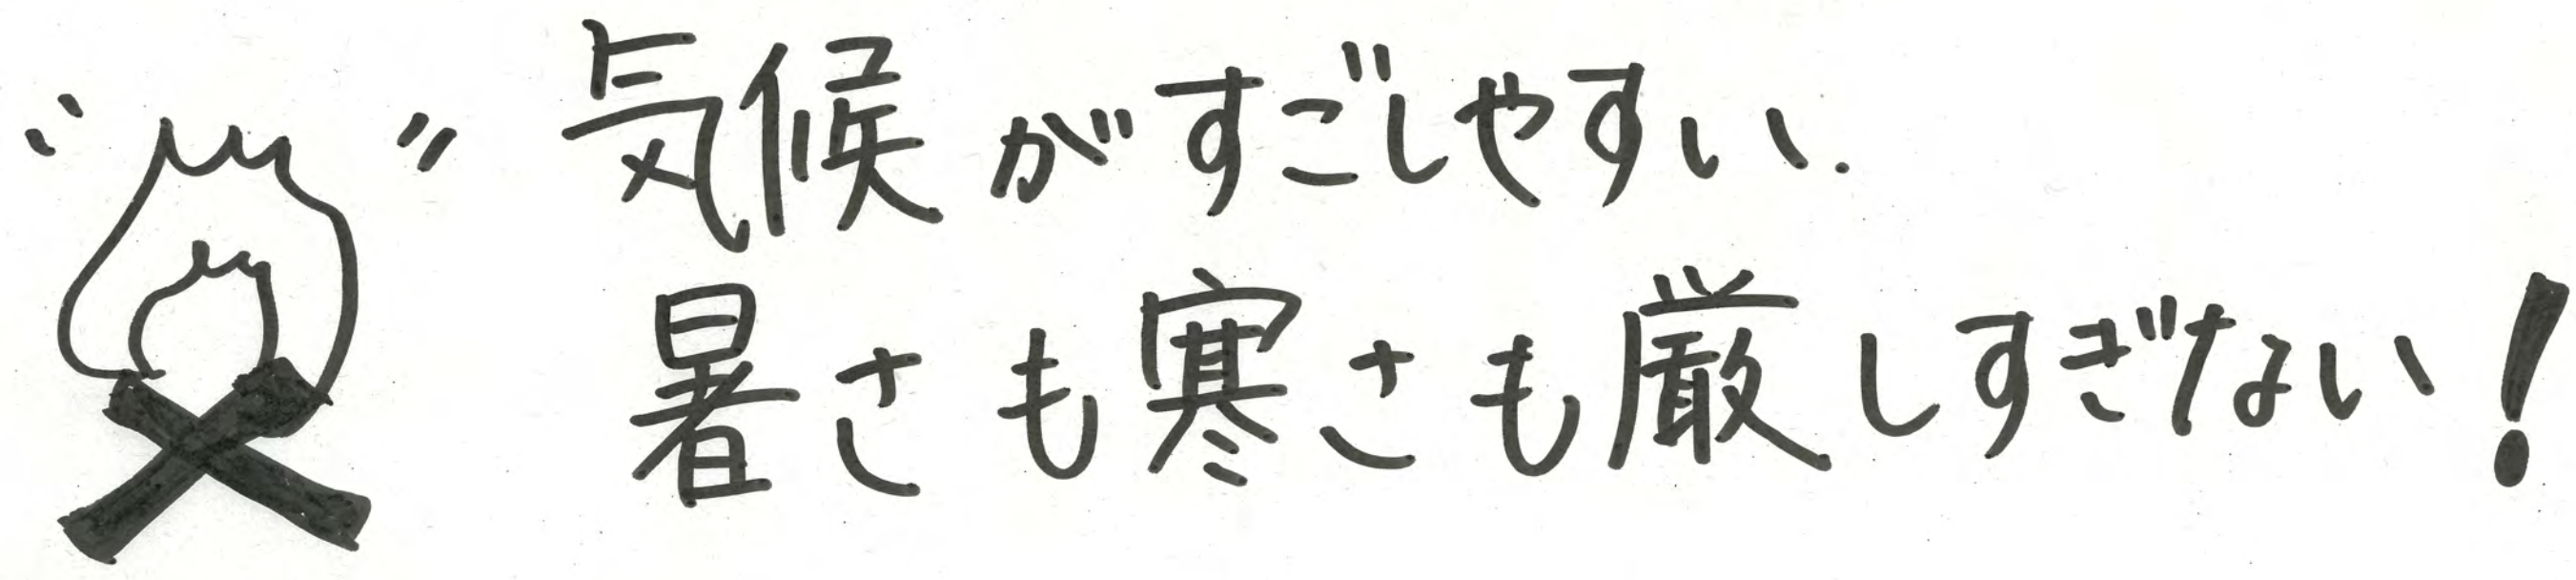 気候がすごしやすい.
暑さも寒さも厳しすぎない!